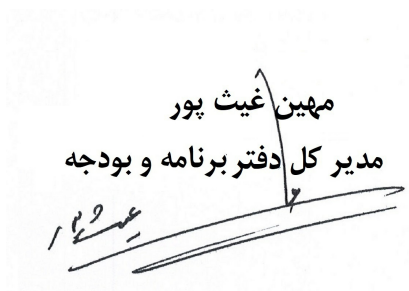 مهین غیث پور
مدیر کل دفتر برنامه و بودجه